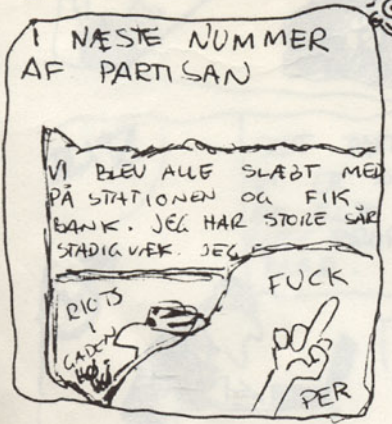 I NÆSTE NUMMER
AF PARTISAN
VI BLEV ALLE SLÆBT MED
PÅ STATIONEN OG FIK
BANK. JEG HAR STORE SÅR
STADIGVÆK. JEG
FUCK
RIOTS
I
GADEN
PER